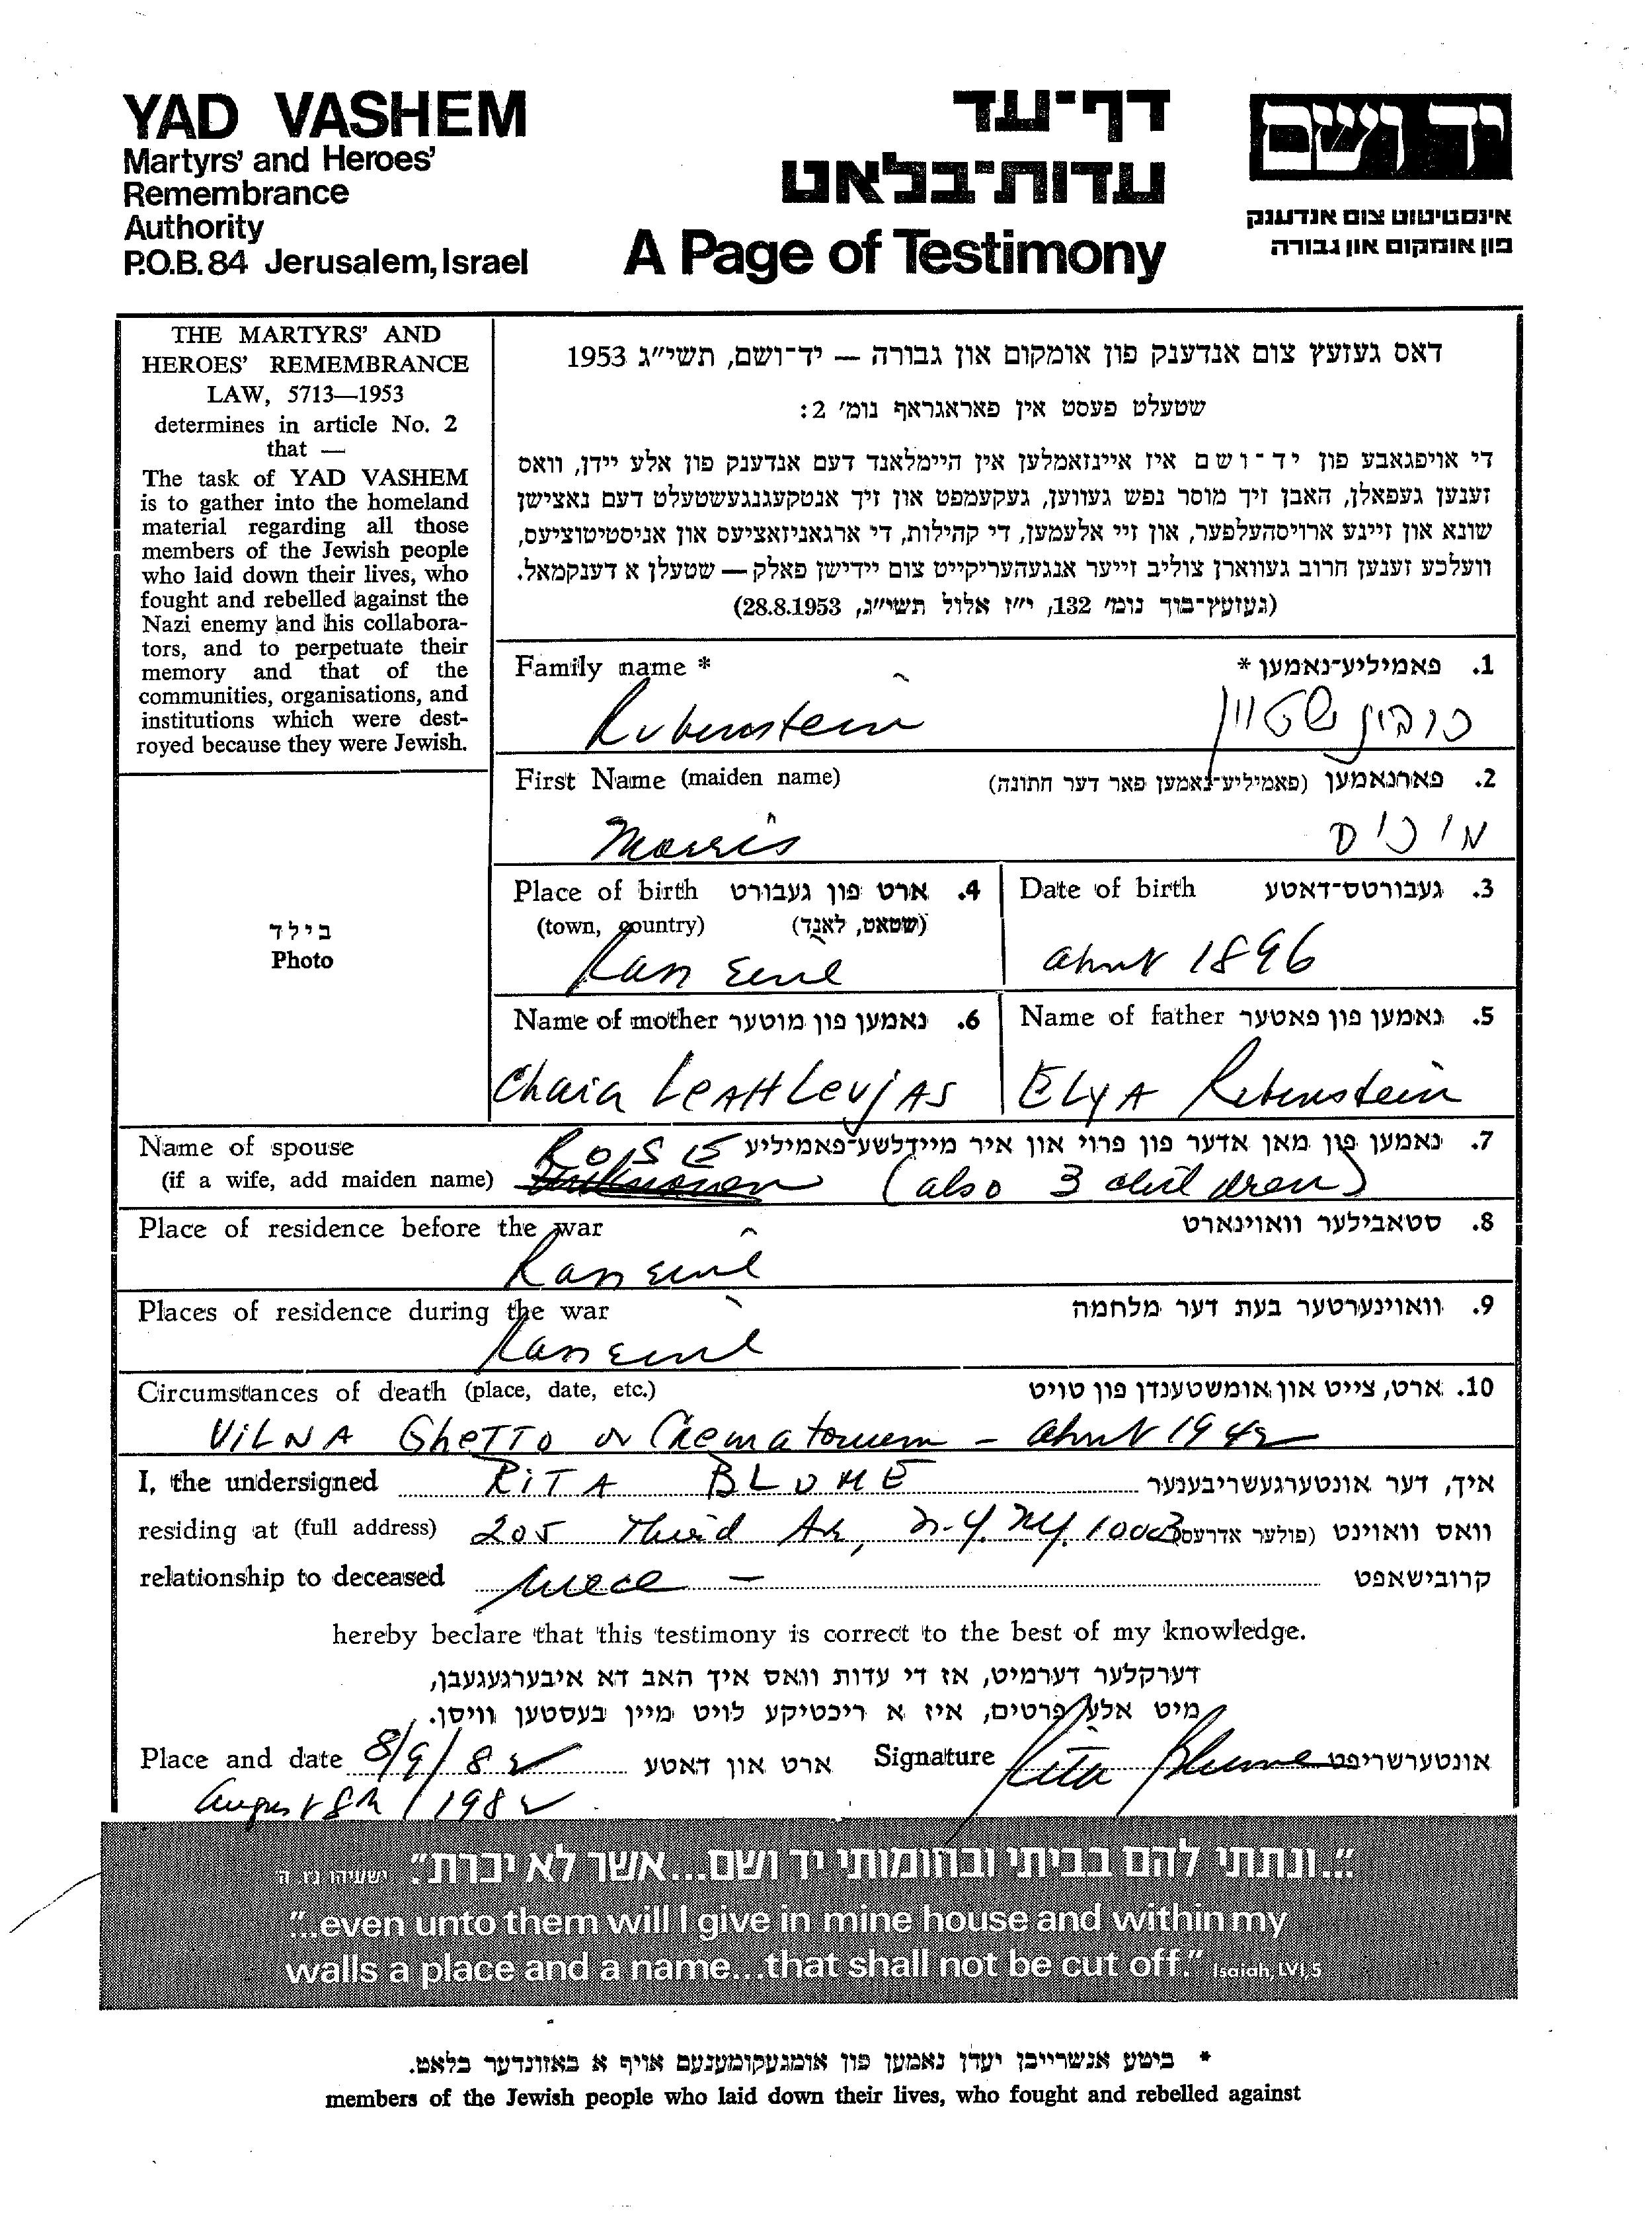 YAD VASHEM
Martyrs' and Heroes'
Remembrance
Authority
P.O.B. 84 Jerusalem, Israel
דף־עד
עדות־בלאט
A Page of Testimony
יד ושם
אינסטיטוט צום אנדענק
פון אומקום און גבורה
THE MARTYRS' AND
HEROES' REMEMBRANCE
LAW, 5713—1953
determines in article No. 2
that —
The task of YAD VASHEM
is to gather into the homeland
material regarding all those
members of the Jewish people
who laid down their lives, who
fought and rebelled against the
Nazi enemy and his collabora-
tors, and to perpetuate their
memory and that of the
communities, organisations, and
institutions which were dest-
royed because they were Jewish.
בילד
Photo
דאס געזעץ צום אנדענק פון אומקום און גבורה — יד־ושם, תשי״ג 1953
שטעלט פעסט אין פאראגראף נומ׳ 2:
די אויפגאבע פון יד־ושם איז איינזאמלען אין היימלאנד דעם אנדענק פון אלע יידן, וואס
זענען געפאלן, האבן זיך מוסר נפש געווען, געקעמפט און זיך אנטקעגנגעשטעלט דעם נאצישן
שונא און זיינע ארויסהעלפער, און זיי אלעמען, די קהילות, די ארגאניזאציעס און אניסטיטוציעס,
וועלכע זענען חרוב געווארן צוליב זייער אנגעהעריקייט צום יידישן פאלק — שטעלן א דענקמאל.
(געזעץ־בוך נומ׳ 132, י״ז אלול תשי״ג, 28.8.1953)
Family name * 1. פאמיליע־נאמען *
Rubenstein רובין שטיין
First Name (maiden name) 2. פארנאמען (פאמיליע־נאמען פאר דער חתונה)
Morris מוריס
Place of birth 4. ארט פון געבורט Date of birth 3. געבורטס־דאטע
(town, country) (שטאט, לאנד)
about 1896
Name of mother 6. נאמען פון מוטער Name of father 5. נאמען פון פאטער
Chaia LeAH LevjAS ELyA Rubenstein
Name of spouse 7. נאמען פון מאן אדער פון פרוי און איר מיידלשע־פאמיליע
ROSE
(if a wife, add maiden name) (also 3 children)
Place of residence before the war 8. סטאבילער וואוינארט
Places of residence during the war 9. וואוינערטער בעת דער מלחמה
Circumstances of death (place, date, etc.) 10. ארט, צייט און אומשטענדן פון טויט
VILNA GheTTo or Crematorium - about 1942
I, the undersigned RITA BLUME איך, דער אונטערגעשריבענער
residing at (full address) 205 Third Av, N.Y. N.Y. 10003 וואס וואוינט (פולער אדרעס)
relationship to deceased niece - קרובישאפט
hereby beclare that this testimony is correct to the best of my knowledge.
דערקלער דערמיט, אז די עדות וואס איך האב דא איבערגעגעבן,
מיט אלע פרטים, איז א ריכטיקע לויט מיין בעסטען וויסן.
Place and date 8/9/82 ארט און דאטע Signature Rita Blume אונטערשריפט
August 8th 1982
"...ונתתי להם בביתי ובחומותי יד ושם...אשר לא יכרת". ישעיהו נז. ה'
"...even unto them will I give in mine house and within my
walls a place and a name...that shall not be cut off." Isaiah, LVI,5
* ביטע אנשרייבן יעדן נאמען פון אומגעקומענעם אויף א באזונדער בלאט.
members of the Jewish people who laid down their lives, who fought and rebelled against